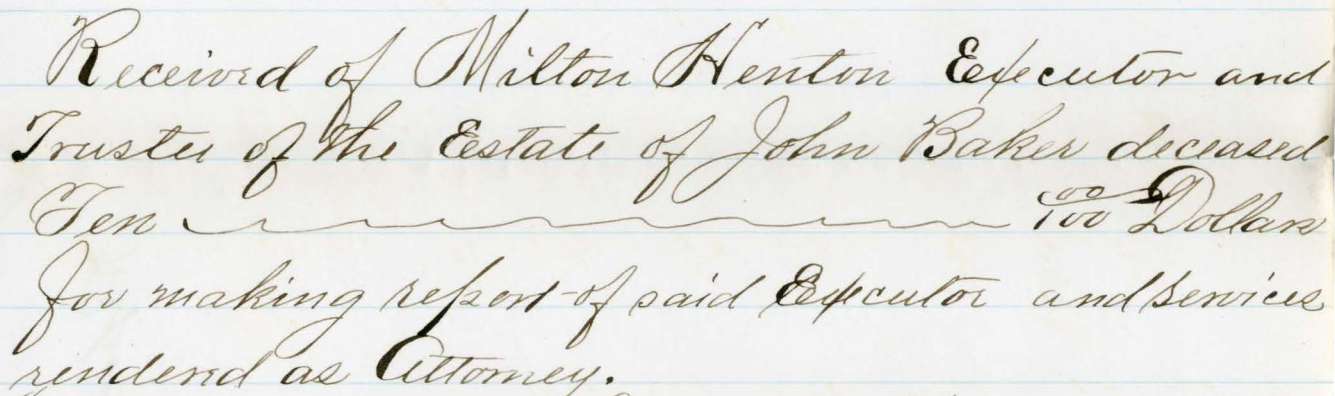 Received of Milton Henton Executor and
Trustee of the Estate of John Baker deceased
Ten 00/100 Dollars
for making report of said Executor and services
rendered as Attorney.